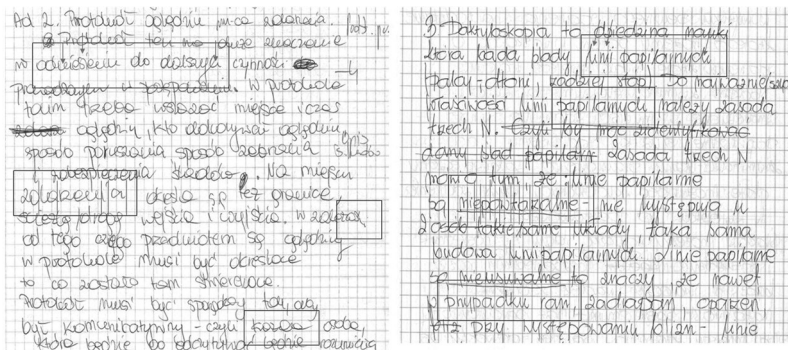 Ad 2. Protokół oględzin miejsca zdarzenia.
Protokół ten ma duże znaczenie
w odniesieniu do dalszych czynności
W protokole
takim trzeba wskazać miejsce i czas
oględzin, kto dokonywał oględzin, opis
sposób poruszania sposób zebrania śladów
i zabezpieczenia śladów. Na miejscu
określa się też granice
drogę wejścia i wyjścia. W
od tego czego przedmiotem są oględziny
w protokole musi być określone
to co zostało tam stwierdzone.
Protokół musi być sporządzony tak, aby
być komunikatywny - czyli każda osoba,
która będzie go odczytywać będzie
3 Daktyloskopia to dziedzina nauki
która bada ślady linii papilarnych
palcy - dłoni, rzadziej stop. Do
właściwości linii papilarnych należy zasada
trzech N. Czyli by móc zidentyfikować
dany ślad papilarn Zasada trzech N
mówi o tym, że: linie papilarne
są niepowtarzalne - nie występują u
2 osób takie same układy, taka sama
budowa linii papilarnych. Linie papilarne
są nieusuwalne to znaczy, że nawet
w przypadku ran, zadrapań, oparzeń
przy występowaniu blizn - linie